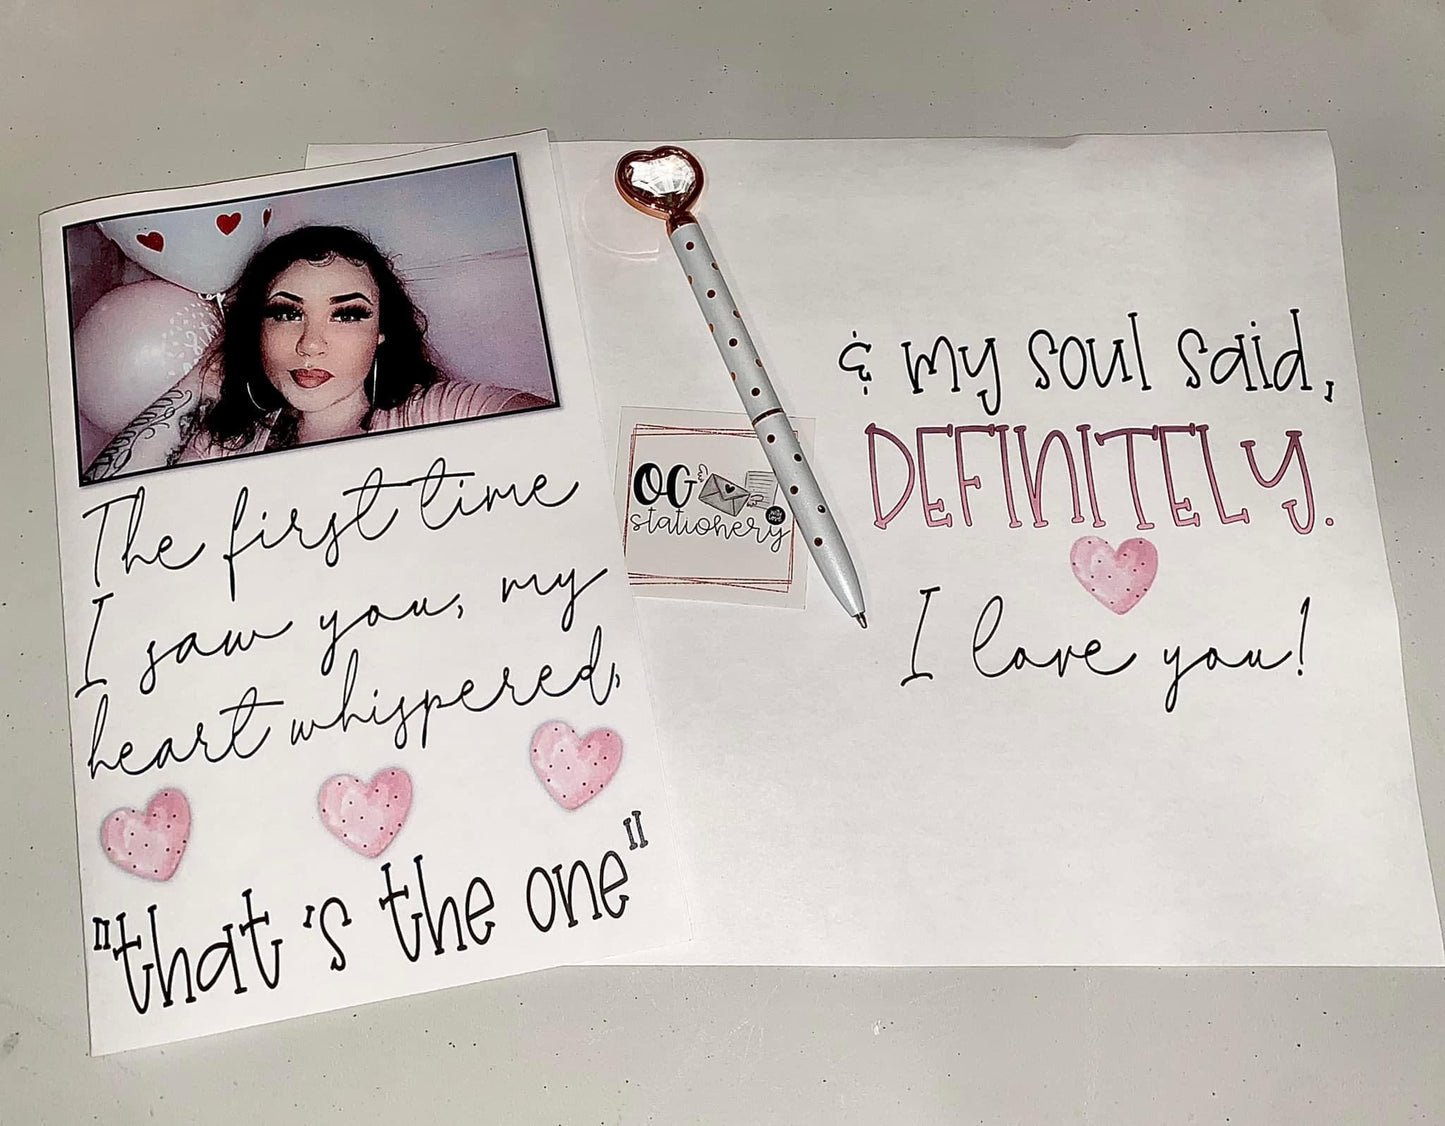 The first time
I saw you, my
heart whispered,
"that's the one"
OG
stationery
& my soul said,
DEFINITELY.
I love you!